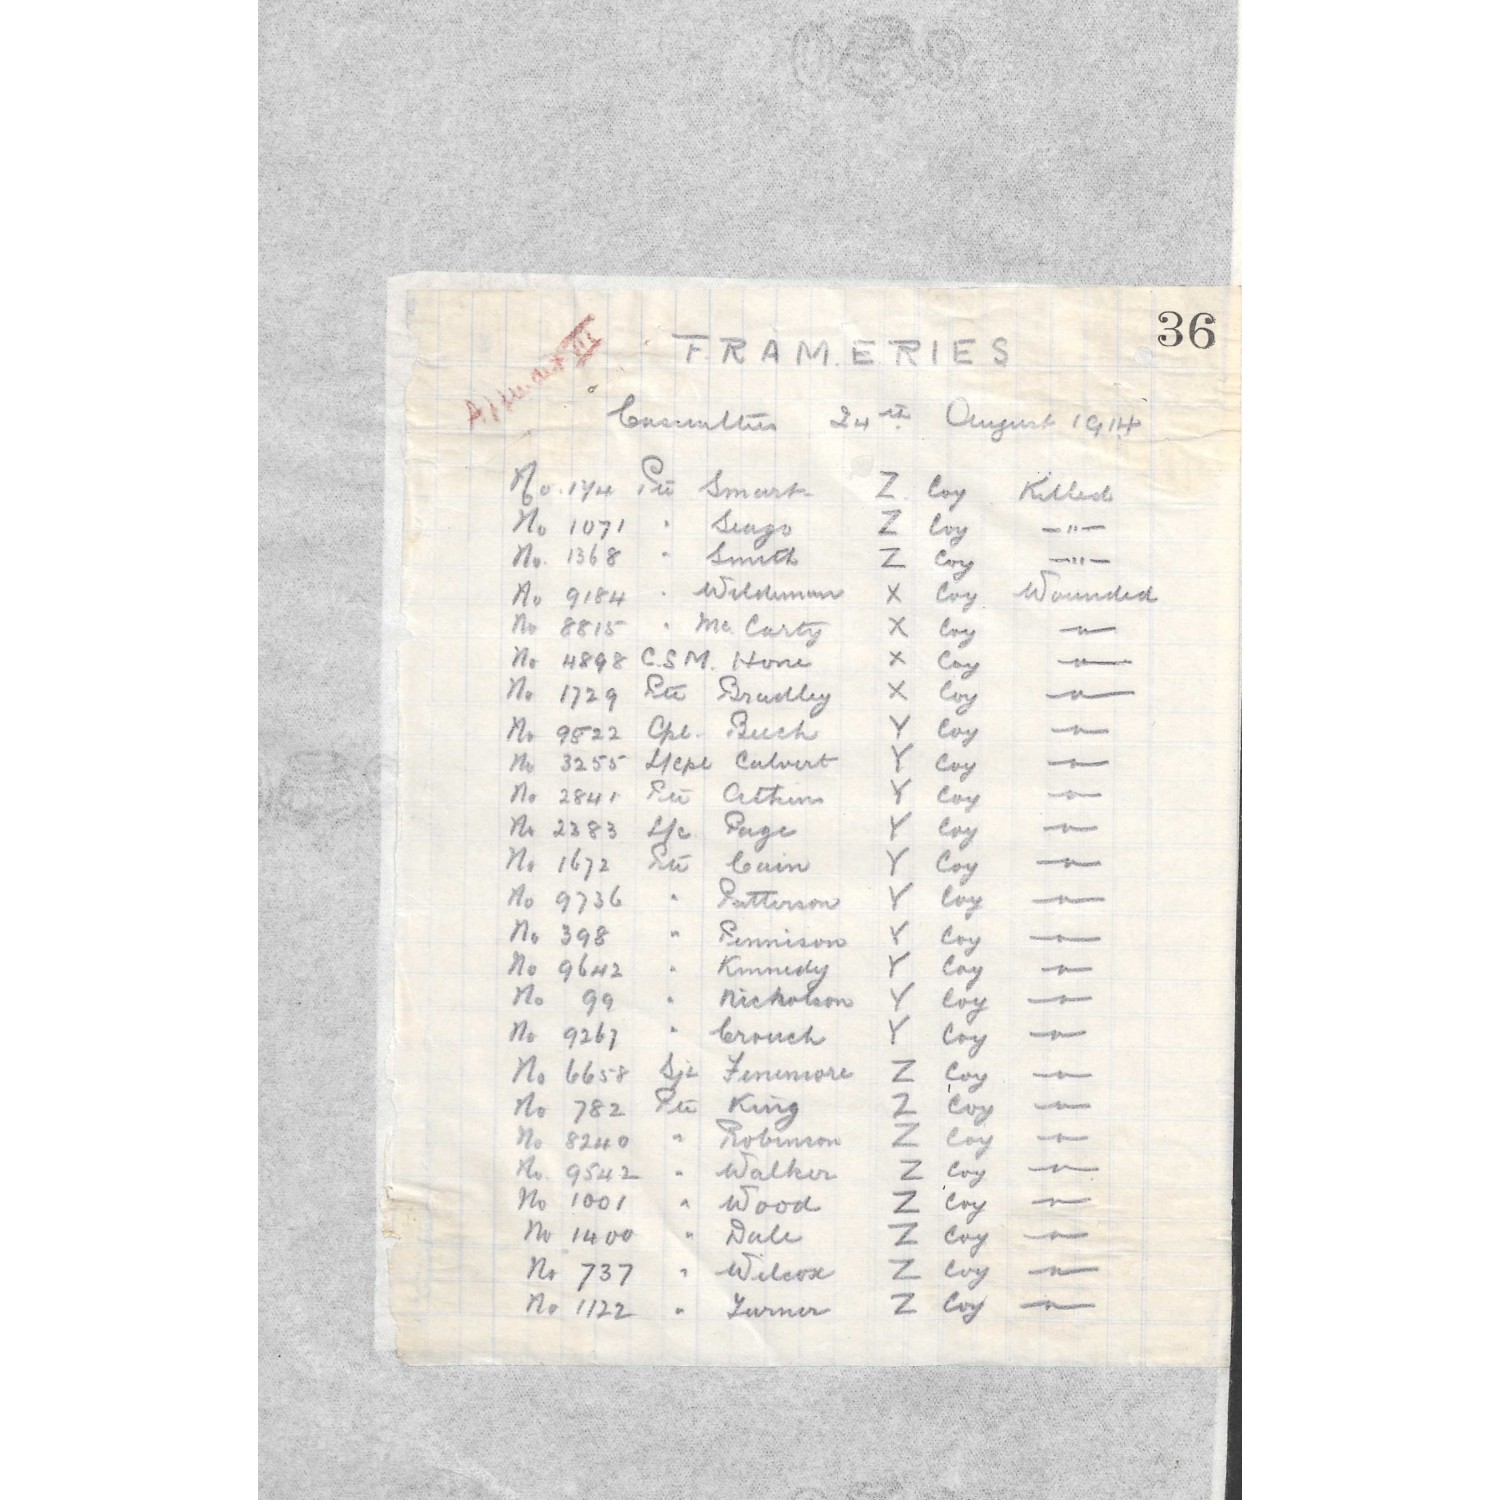 36
Appendix III
FRAMERIES
Casualties 24th August 1914
No. 174 Pte Smart Z Coy Killed
No 1071 " Seago Z Coy —"—
No. 1368 " Smith Z Coy —"—
No 9184 " Wildeman X Coy Wounded
No 8815 " Mc Carty X Coy —"—
No 4898 C.S.M. Hone X Coy —"—
No 1729 Pte Bradley X Coy —"—
No 9522 Cpl. Beech Y Coy —"—
No 3255 L/Cpl Calvert Y Coy —"—
No 2841 Pte Atkins Y Coy —"—
No 2383 L/c Page Y Coy —"—
No 1672 Pte Cain Y Coy —"—
No 9736 " Patterson Y Coy —"—
No 398 " Pennison Y Coy —"—
No 9642 " Kennedy Y Coy —"—
No 99 " Nicholson Y Coy —"—
No 9267 " Crouch Y Coy —"—
No 6658 Sjt Fenemore Z Coy —"—
No 782 Pte King Z Coy —"—
No 8240 " Robinson Z Coy —"—
No. 9542 " Walker Z Coy —"—
No 1001 " Wood Z Coy —"—
No 1400 " Dale Z Coy —"—
No 737 " Wilcox Z Coy —"—
No 1122 " Turner Z Coy —"—